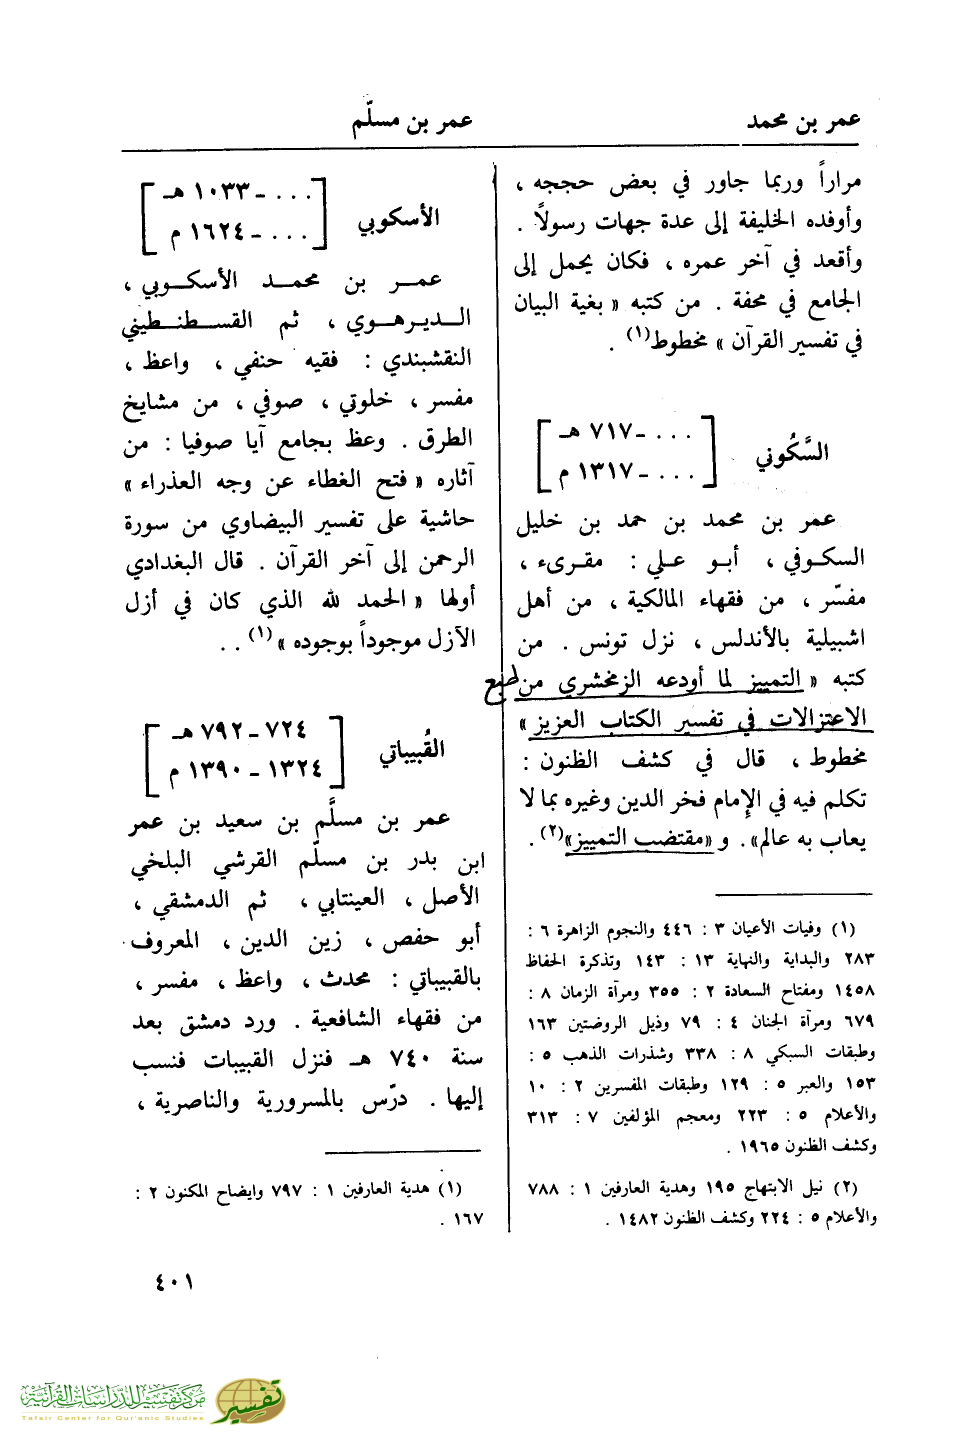 عمر بن محمد
عمر بن مسلّم
مراراً وربما جاور في بعض حججه ،
وأوفده الخليفة إلى عدة جهات رسولاً .
وأقعد في آخر عمره ، فكان يحمل إلى
الجامع في محفة . من كتبه « بغية البيان
في تفسير القرآن » مخطوط(١) .
السَّكُوني
. . . ـ ٧١٧ هـ
. . . ـ ١٣١٧ م
عمر بن محمد بن حمد بن خليل
السكوفي ، أبو علي : مقرىء ،
مفسّر ، من فقهاء المالكية ، من أهل
اشبيلية بالأندلس ، نزل تونس . من
كتبه « التمييز لما أودعه الزمخشري من
طبع
الاعتزالات في تفسير الكتاب العزيز »
مخطوط ، قال في كشف الظنون :
تكلم فيه في الإمام فخر الدين وغيره بما لا
يعاب به عالم» . و «مقتضب التمييز»(٢) .
(١) وفيات الأعيان ٣ : ٤٤٦ والنجوم الزاهرة ٦ :
٢٨٣ والبداية والنهاية ١٣ : ١٤٣ وتذكرة الحفاظ
١٤٥٨ ومفتاح السعادة ٢ : ٣٥٥ ومرآة الزمان ٨ :
٦٧٩ ومرآة الجنان ٤ : ٧٩ وذيل الروضتين ١٦٣
وطبقات السبكي ٨ : ٣٣٨ وشذرات الذهب ٥ :
١٥٣ والعبر ٥ : ١٢٩ وطبقات المفسرين ٢ : ١٠
والأعلام ٥ : ٢٢٣ ومعجم المؤلفين ٧ : ٣١٣
وكشف الظنون ١٩٦٥ .
(٢) نيل الابتهاج ١٩٥ وهدية العارفين ١ : ٧٨٨
والأعلام ٥ : ٢٢٤ وكشف الظنون ١٤٨٢ .
الأسكوبي
. . . ـ ١٠٣٣ هـ
. . . ـ ١٦٢٤ م
عمر بن محمد الأسكوبي ،
الديرهوي ، ثم القسطنطيني
النقشبندي : فقيه حنفي ، واعظ ،
مفسر ، خلوتي ، صوفي ، من مشايخ
الطرق . وعظ بجامع آيا صوفيا : من
آثاره « فتح الغطاء عن وجه العذراء »
حاشية على تفسير البيضاوي من سورة
الرحمن إلى آخر القرآن . قال البغدادي
أولها « الحمد لله الذي كان في أزل
الآزل موجوداً بوجوده »(١) . .
القُبيباتي
٧٢٤ ـ ٧٩٢ هـ
١٣٢٤ ـ ١٣٩٠ م
عمر بن مسلَّم بن سعيد بن عمر
ابن بدر بن مسلّم القرشي البلخي
الأصل ، العينتابي ، ثم الدمشقي ،
أبو حفص ، زين الدين ، المعروف
بالقبيباتي : محدث ، واعظ ، مفسر ،
من فقهاء الشافعية . ورد دمشق بعد
سنة ٧٤٠ هـ فنزل القبيبات فنسب
إليها . درّس بالمسرورية والناصرية ،
(١) هدية العارفين ١ : ٧٩٧ وايضاح المكنون ٢ :
١٦٧ .
٤٠١
مركز تفسير للدراسات القرآنية
Tafsir Center for Qur'anic Studies
تفسير